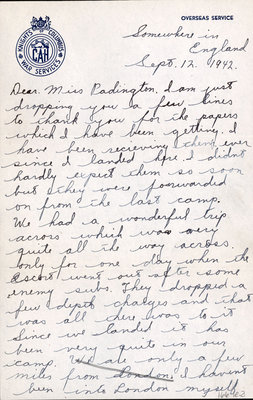 OVERSEAS SERVICE
KNIGHTS OF COLUMBUS
CAH
WAR SERVICES
Somewhere in
England
Sept. 12. 1942.
Dear. Miss Padington. I am just
dropping you a few lines
to thank you for the papers
which I have been getting. I
have been recieving them ever
since I landed here. I didnt
hardly expect them so soon
but they were forwarded
on from the last camp.
We had a wonderful trip
across which was very
quite all the way across.
only for one day when the
Escort went out after some
enemy subs. They dropped a
few depth charges and that
was all there was to it
Since we landed it has
been very quite in our
camp. We are only a few
miles from London, I havent
been into London myself